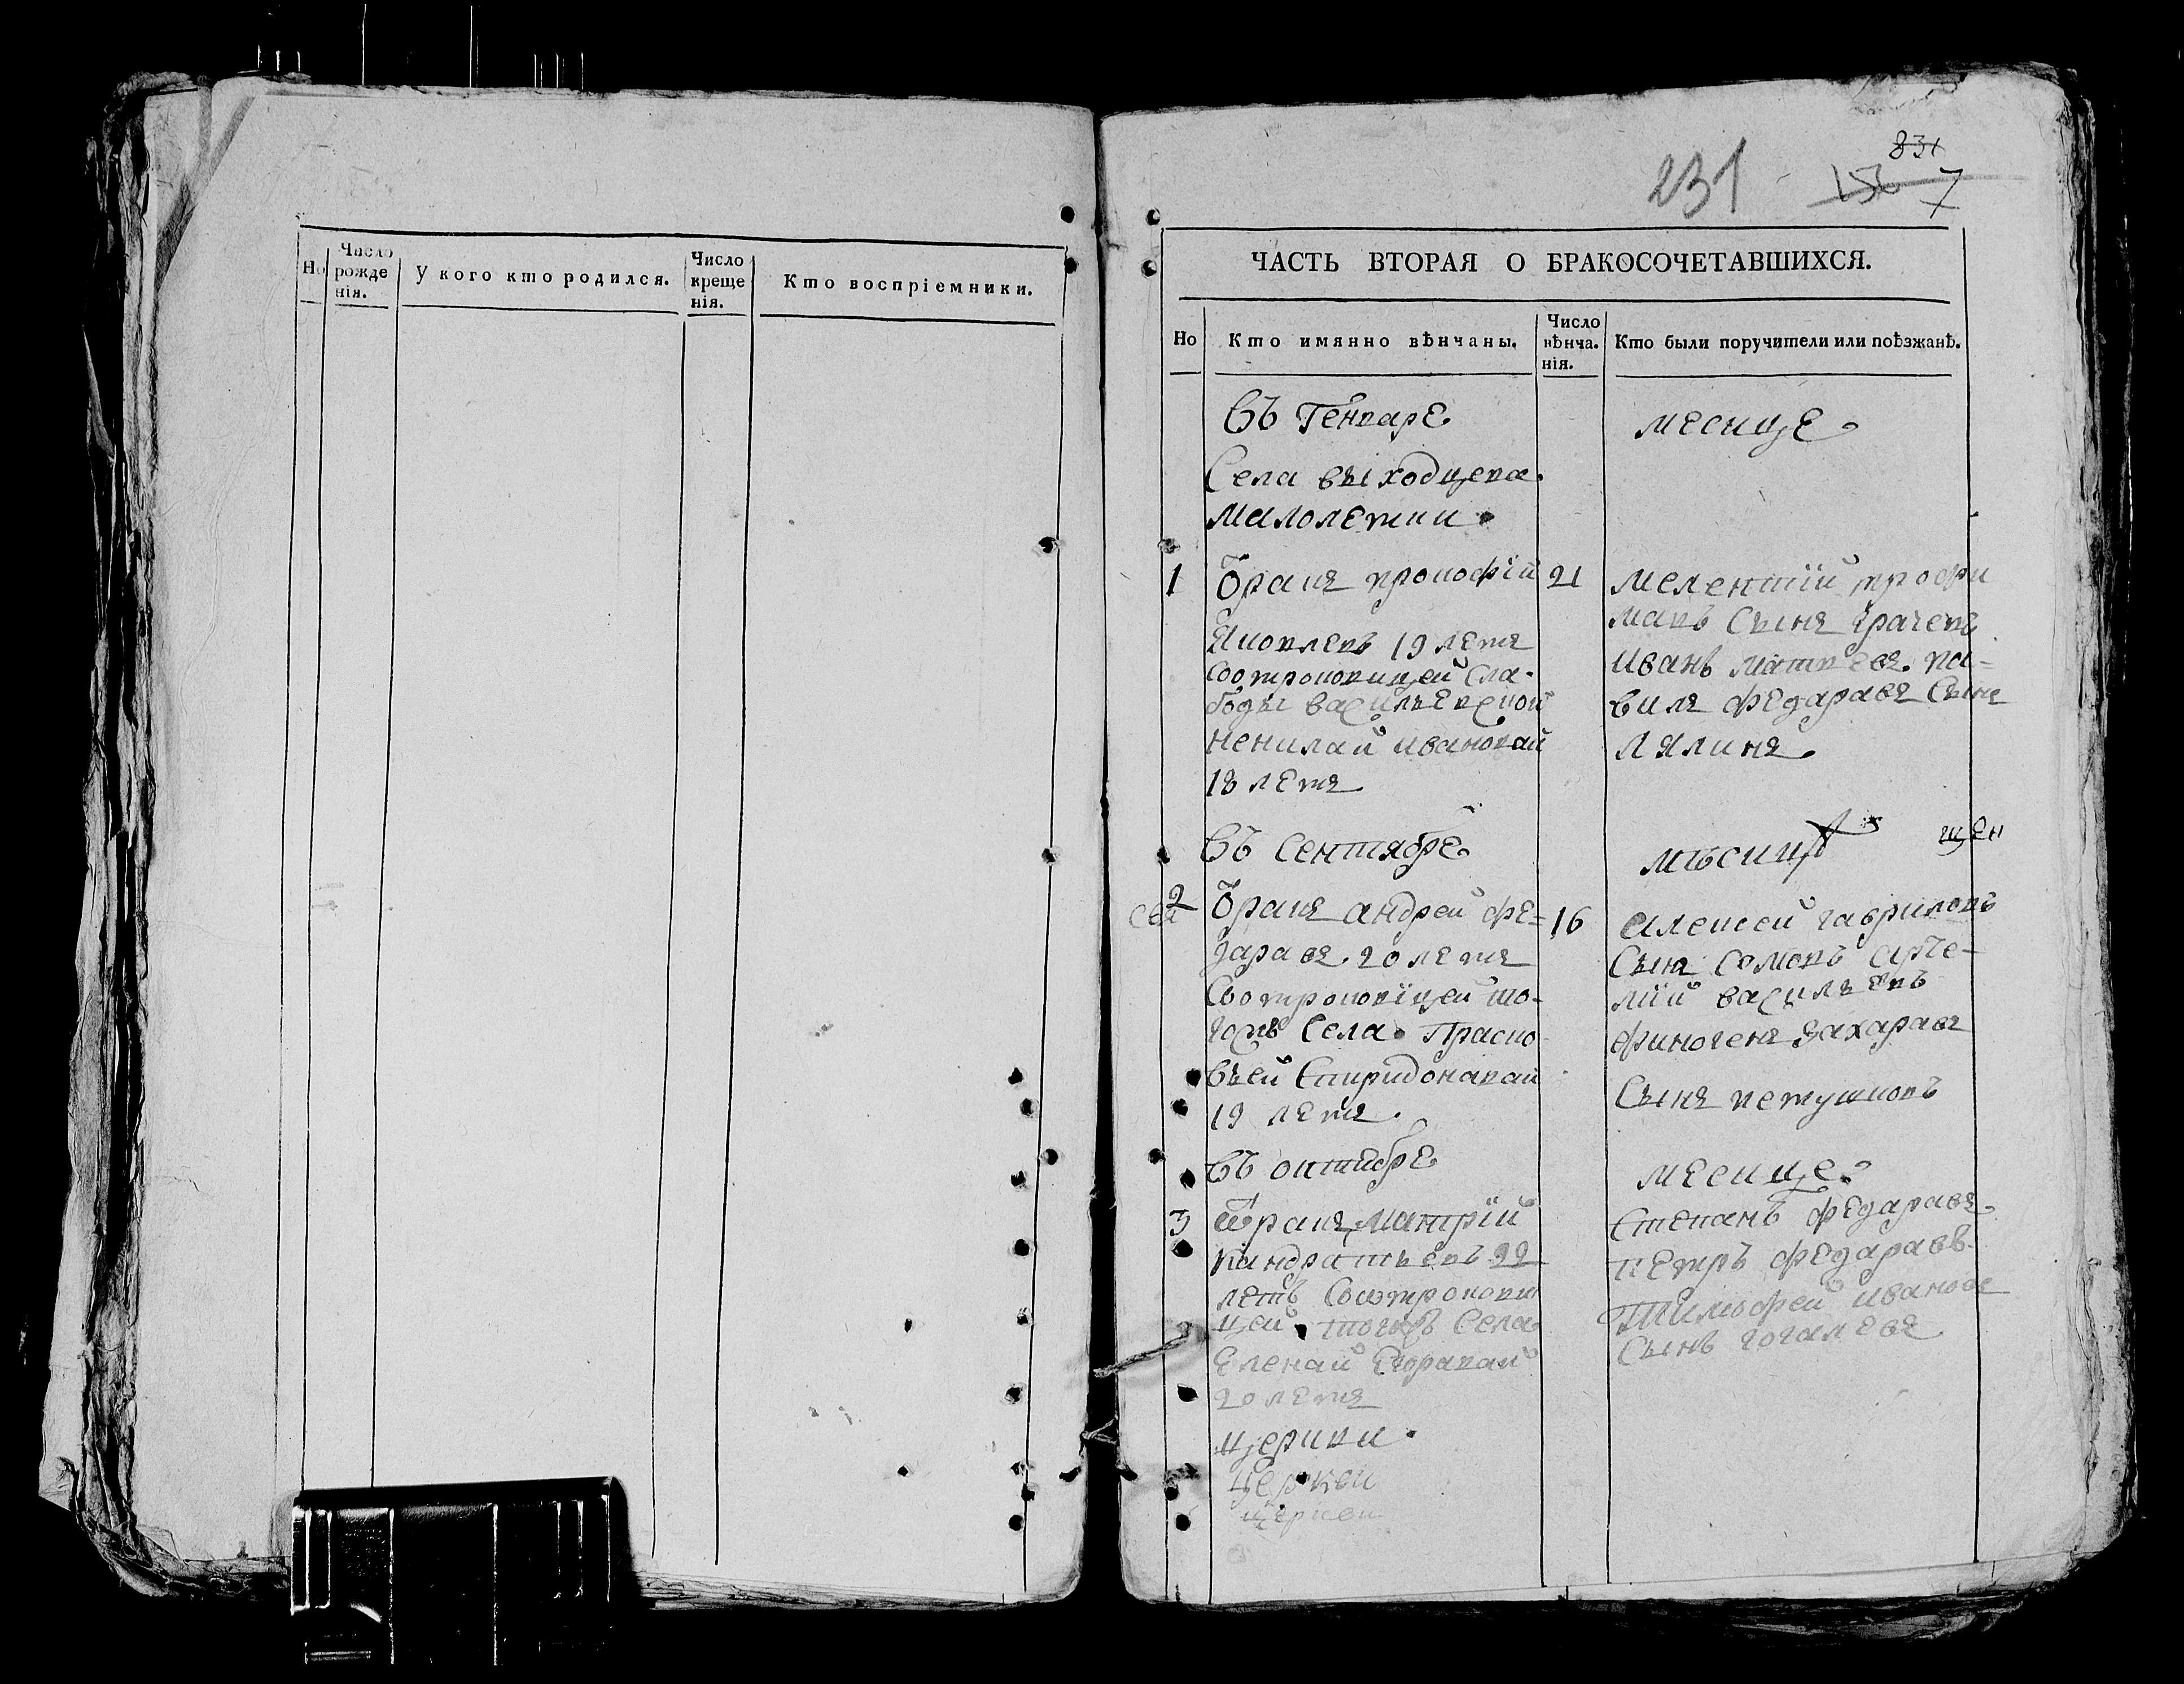 Но
Число рождe нія.
У кого кто родился.
Число креще нія.
Кто воспріемники.
231
831
7
ЧАСТЬ ВТОРАЯ О БРАКОСОЧЕТАВШИХСЯ.
Но
Кто имянно вѣнчаны.
Число вѣнча. нія.
Кто были поручители или поѣзжанѣ.
Въ Генваре месице
Села выходцева
Малолетки
1 Бракъ прокофїй 21
Яковлевъ 19 летъ
соотроковицей сла-
боды васильевской
ненилай ивановай
18 летъ
мелентїй трофи
мавъ сынъ грачевъ
иванъ матвевъ. га-
вила федаравъ сынъ
лялинъ
Въ Сентябре
2 Бракъ андрей фе= 16
даравъ. 20 летъ
Соотроковїцей то-
гожъ села Праско
вьей Спиридонавай
19 летъ.
алексей гавриловъ
сынъ сомовъ арте-
мїй васильевъ
финогенъ захаравъ
сынъ петушковъ
Въ октябре месице
3 Бракъ Митрїй
кандратьевъ 22
летъ Соотрокови
цей тогожъ села
Еленай Егоравай
20 летъ
Степанъ федаравъ.
петръ федаравъ
Тимофей ивановъ
сынъ гогалевъ
церкви
церкви
церкви